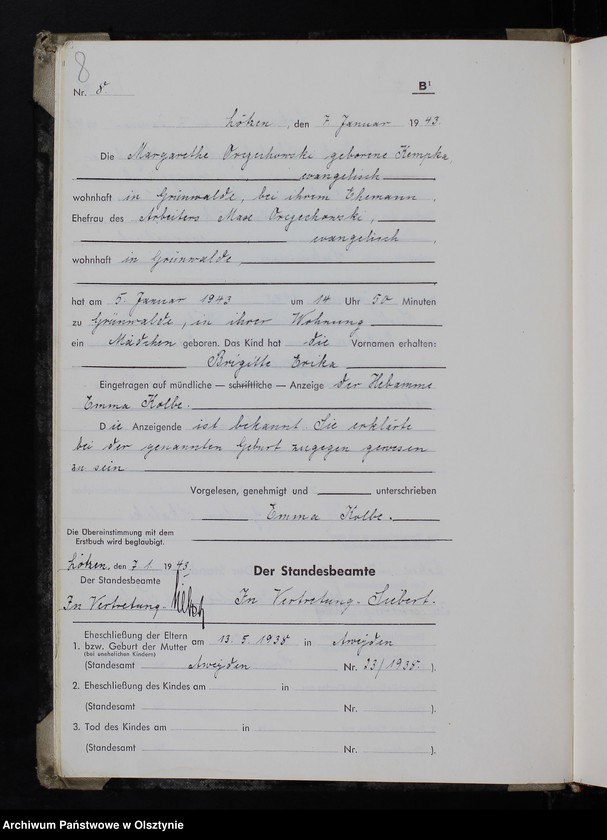 8
Nr. 8
B¹
Lötzen, den 7. Januar 1943.
Die Margarethe Orzechowski geborene Kempka,
evangelisch
wohnhaft in Grünwalde, bei ihrem Ehemann.
Ehefrau des Arbeiters Max Orzechowski,
evangelisch.
wohnhaft in Grünwalde
hat am 5. Januar 1943 um 14 Uhr 50 Minuten
zu Grünwalde, in ihrer Wohnung
ein Mädchen geboren. Das Kind hat die Vornamen erhalten:
Brigitte Erika
Eingetragen auf mündliche — schriftliche — Anzeige der Hebamme
Emma Kolbe.
Die Anzeigende ist bekannt Sie erklärte
bei der genannten Geburt zugegen gewesen
zu sein
Vorgelesen, genehmigt und unterschrieben
Emma Kolbe.
Die Übereinstimmung mit dem
Erstbuch wird beglaubigt.
Lötzen, den 7 1 1943.
Der Standesbeamte
Der Standesbeamte
In Vertretung. In Vertretung. Siebert.
1. Eheschließung der Eltern bzw. Geburt der Mutter am 13. 5. 1938 in Aweyden
(bei unehelichen Kindern)
(Standesamt Aweyden Nr. 23/1938 ).
2. Eheschließung des Kindes am in
(Standesamt Nr. ).
3. Tod des Kindes am in
(Standesamt Nr. ).
Archiwum Państwowe w Olsztynie